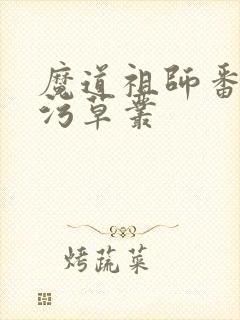 魔道祖師番
污草叢
烤蔬菜